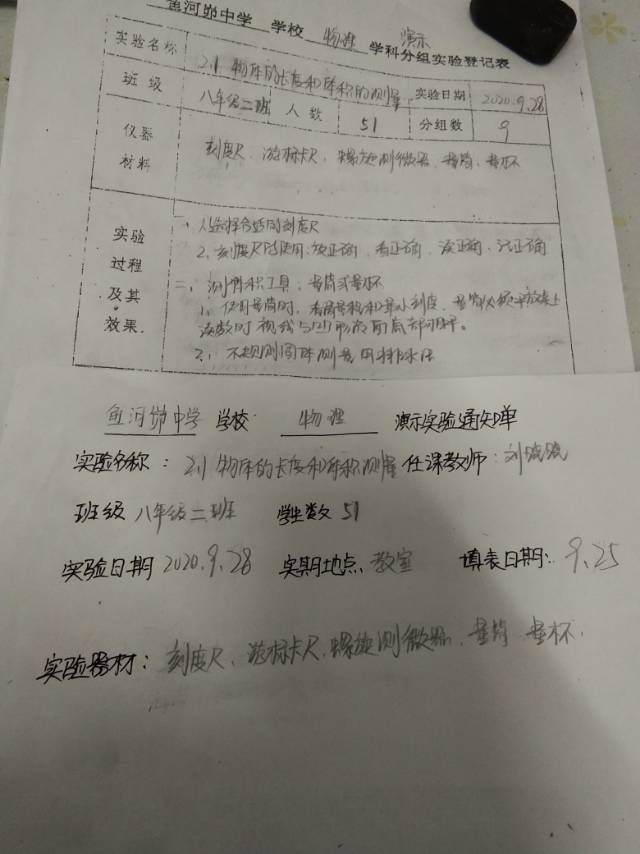 鱼河峁中学 学校 物理 演示 学科分组实验登记表
实验名称 2.1 物体的长度和体积的测量 实验日期 2020.9.28
班级 八年级二班 人数 51 分组数 9
仪器材料 刻度尺、游标卡尺、螺旋测微器、量筒、量杯
实验过程及其效果.
一、1.选择合适的刻度尺
2. 刻度尺的使用:放正确、看正确、读正确、记正确
二、测体积工具:量筒或量杯
1. 使用量筒时,看清量程和最小刻度,量筒必须平放桌上
读数时视线与凹形液面底部相平。
2. 不规则固体测量用排水法
鱼河峁中学 学校 物理 演示实验通知单
实验名称:2.1 物体的长度和体积测量 任课教师:刘
班级 八年级二班 学生数 51
实验日期 2020.9.28 实期地点:教室 填表日期:9.25
实验器材:刻度尺、游标卡尺、螺旋测微器、量筒、量杯.